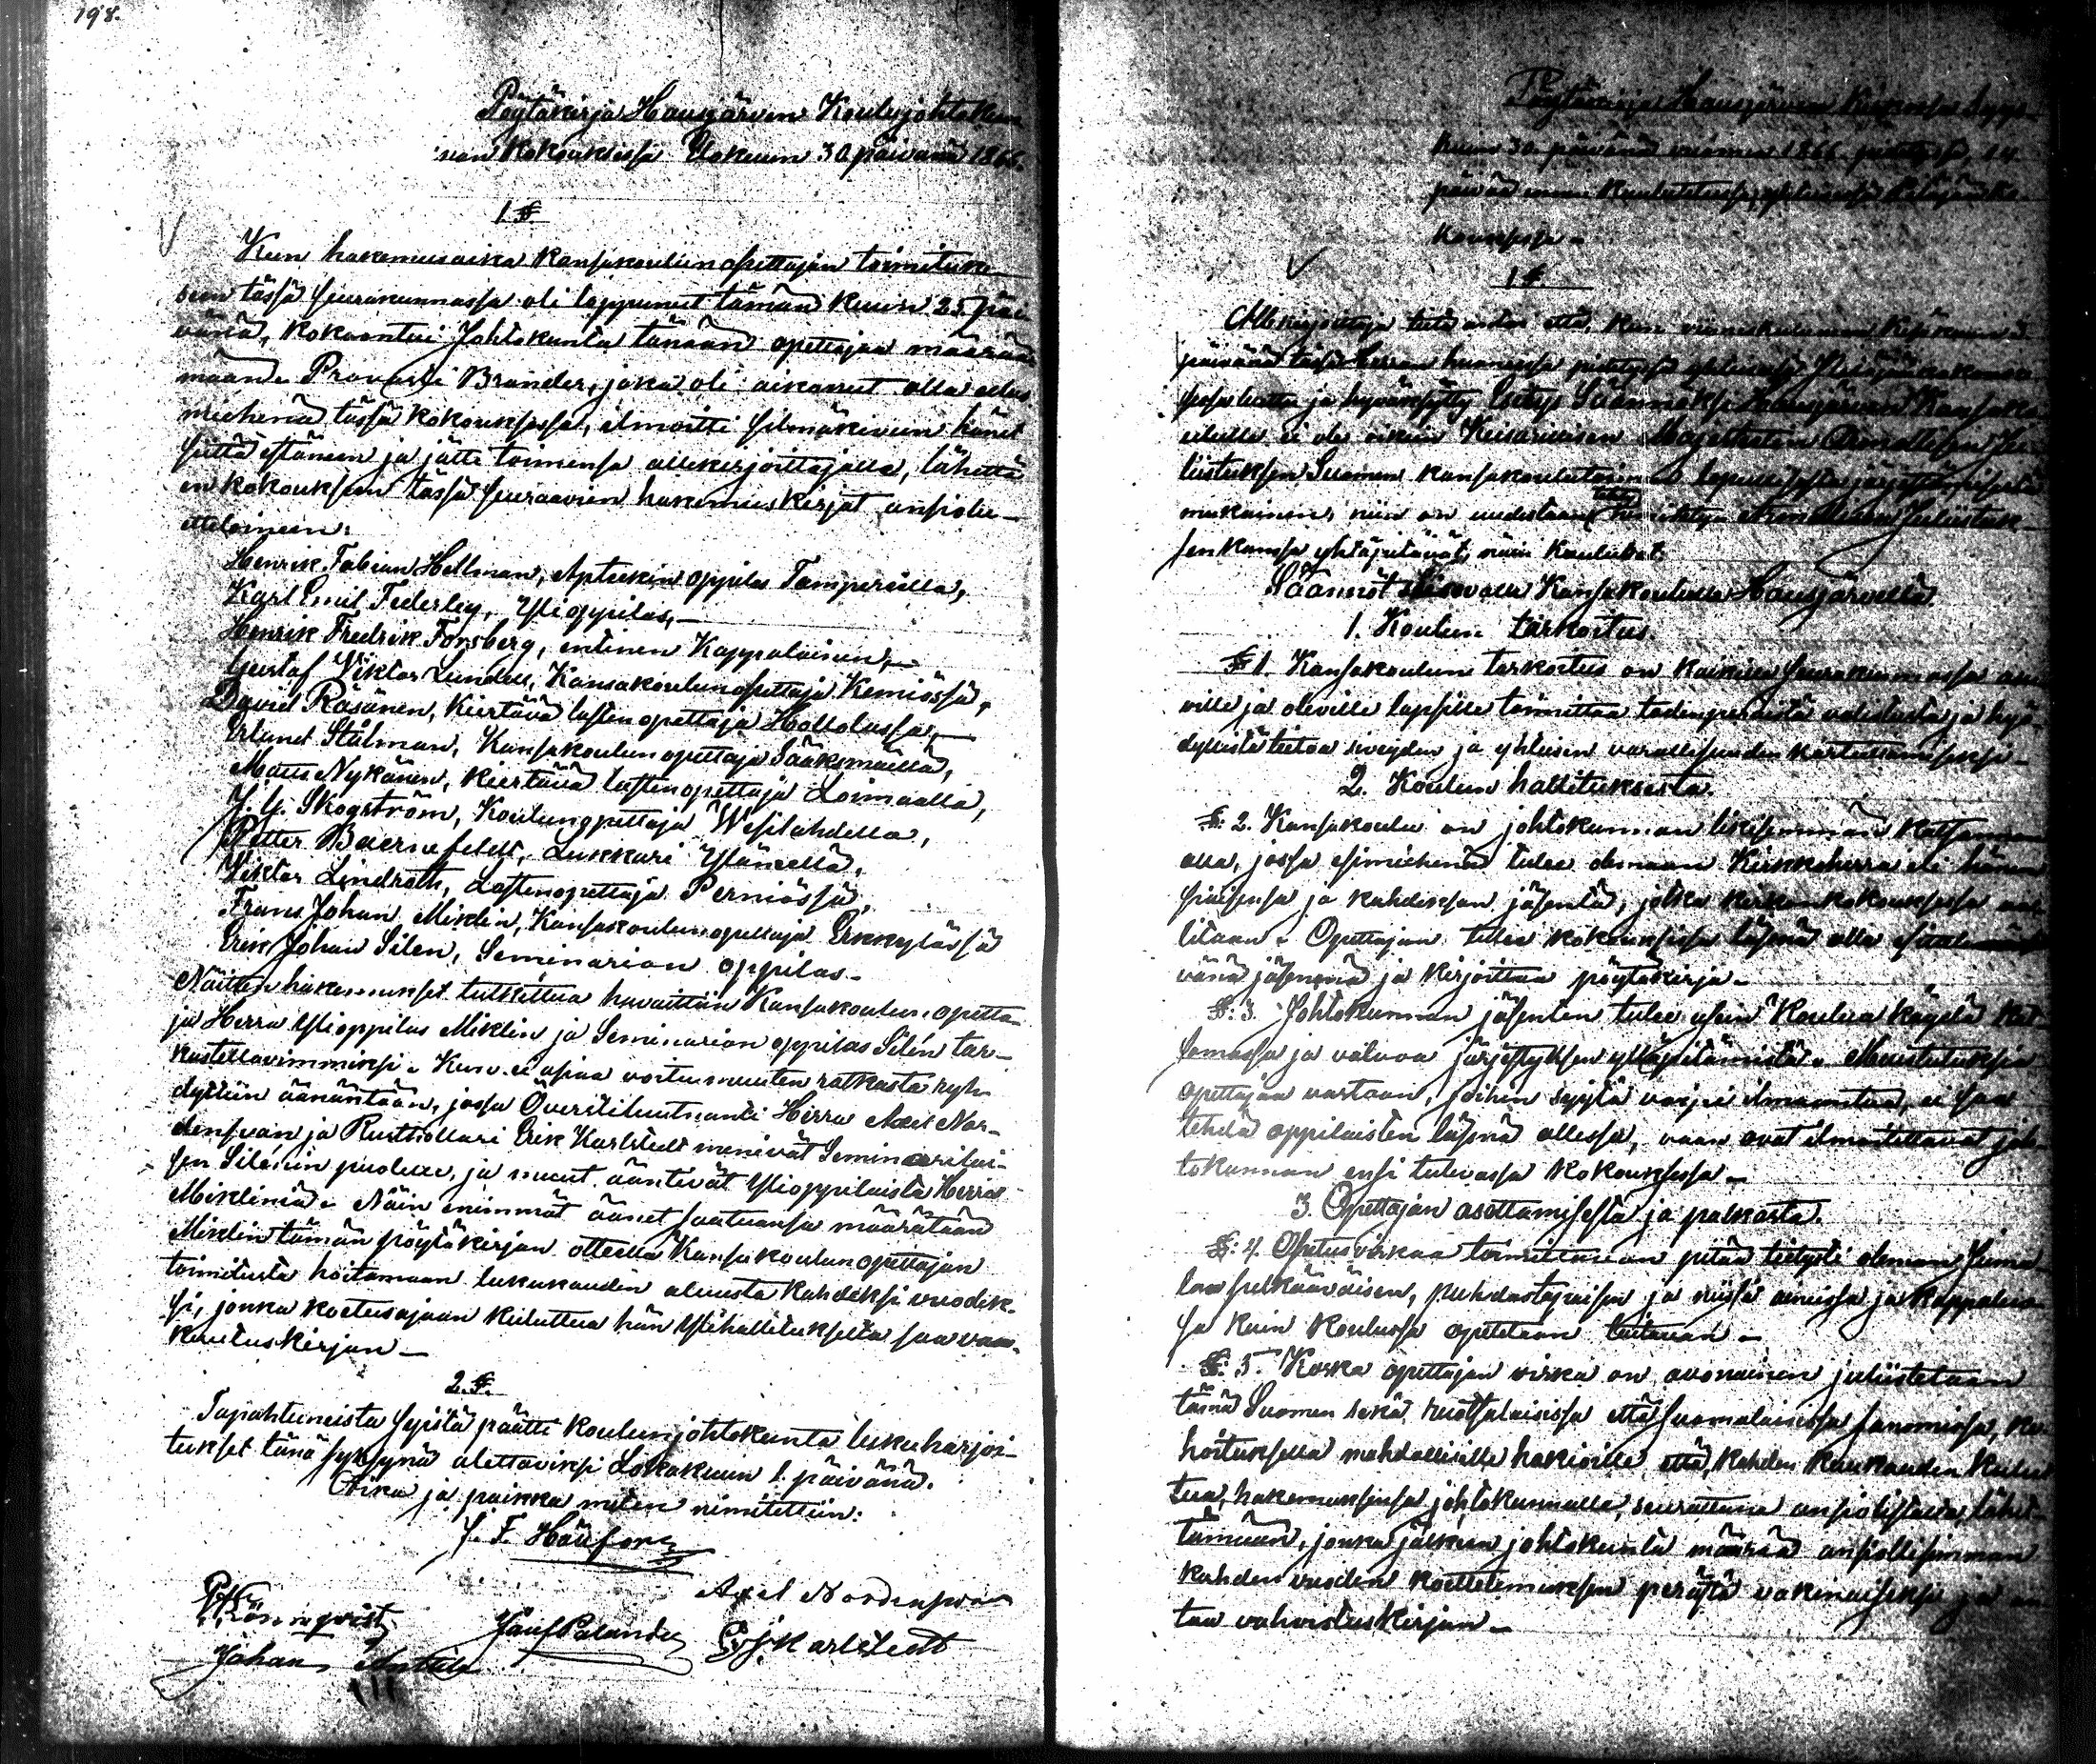 198.
Pöytäkirja Hausjärven Koulujohtokun-
nan Kokouksessa Elokuun 30 päivänä 1866.
1. §.
Kun hakemusaika kansakoulunopettajan toimituk-
seen tässä seurakunnassa oli loppunut tämän kuun 25 päi-
vänä, kokoontui Johtokunta tänään opettajaa määrää-
mään. Provasti Brander, joka oli aikonut olla esi-
miehenä tässä kokouksessa, ilmoitti silmäkivun hänet
siitä estäneen ja jätti toimensa allekirjoittajalle, lähettä-
en kokoukseen tässä seuraavien hakemuskirjat ansiolu-
etteloineen:
Henrik Fabian Hellman, Apteekin oppilas Tampereella,
Karl Emil Federley, Ylioppilas,
Henrik Fredrik Forsberg, entinen Kappalainen,
Gustaf Viktor Lundell, Kansakoulunopettaja Kemiössä,
David Räsänen, Kiertävä lastenopettaja Hollolassa,
Erland Stålman, Kansakoulunopettaja Sääksmäellä,
Matts Nykänen, kiertävä lastenopettaja Loimaalla,
J. G. Skogström, Koulunopettaja Wesilahdella,
Petter Baernefeldt, Lukkari Yläneellä,
Viktor Lindroth, Lastenopettaja Perniössä,
Frans Johan Miklin, Kansakoulunopettaja Erkkylässä
Erik Johan Silen, Seminarian oppilas.
Näitten hakemukset tutkittua havaittiin Kansakoulun opetta-
ja Herra Ylioppilas Miklin ja Seminarian oppilas Silén tar-
kastettavimmiksi. Kun ei asiaa voitu muuten ratkasta ryh-
dyttiin äänäntään, jossa Överstiluutnanti Herra Axel Nor-
densvan ja Rusthollari Erik Karlstedt menivät Seminarilai-
sen Silénin puolelle, ja muut ääntivät Ylioppilasta Herra
Mikliniä. Näin enimmät äänet saatuansa määrätään
Miklin tämän pöytäkirjan otteella Kansakoulunopettajan
toimitusta hoitamaan lukukauden alusta kahdeksi vuodek-
si, jonka koetusajan kuluttua hän Ylihallitukselta saa vaa-
kuutuskirjan —
2. §.
Tapahtuneista syistä päätti koulunjohtokunta lukuharjoi-
tukset tänä syksynä alettaviksi Lokakuun 1. päivänä.
Aika ja paikka miten nimitettiin:
J. F. Häufors
Axel Nordensvan
Rönnqvist
Josef Palander
E. J. Karlstedt
Johan Anttila
Pöytäkirja Hausjärven Kirkossa
kuun 30. päivänä vuonna 1866 pidetyssä, 14
päivää ennen kuulutetussa, yhteisessä Pitäjänko-
kouksessa.
1 §
Allekirjoittaja teki että, kun viimekuluneen Kesäkuun 3
päivänä tässä Herran huoneessa pidetyssä yhteisessä
luettu ja hyväksytty Esitys Säännöksi Hausjärven Kansako-
ululle ei ole oikein Keisarillisen Majesteetin Armollisen Ju-
listuksen Suomen kansakoulutoimen
mukainen, niin on uudestaan tehty Armollisen Julistuk-
sen kanssa yhtäpitävät, näin kuuluvat:
Säännöt Kansakoululle Hausjärvellä.
1. Koulun tarkoitus.
§ 1. Kansakoulun tarkoitus on kaikille seurakunnassa asu-
ville ja oleville lapsille toimittaa todenperäistä valistusta ja hyö-
dyllistä tietoa siveyden ja yhteisen varallisuuden kartuttamiseksi.
2. Koulun hallituksesta.
§: 2. Kansakoulu on johtokunnan likisemmän katsannon
alla, jossa esimiehenä tulee olemaan Kirkkoherra eli hänen
siaisensa ja kahdeksan jäsentä, jotka kirkonkokouksessa va-
litaan. Opettajan tulee kokouksissa läsnä olla
vänä jäsenenä ja kirjoittaa pöytäkirja.
§: 3. Johtokunnan jäsenten tulee usein koulua käydä kat-
somassa ja valvoa järjestyksen ylläpitämistä. Muistutuksia
opettajaa vastaan, joihin syytä voipi ilmaantua, ei saa
tehdä oppilaisten läsnä ollessa, vaan ovat ilmoitettavat joh-
tokunnan ensi tulevassa kokouksessa.
3. Opettajan asettamisesta ja palkasta.
§: 4. Opetusvirkaa toimittaman pitää tietysti oleman Juma-
laa pelkääväisen, puhdastapaisen ja niissä aineissa ja kappaleis-
sa kuin koulussa opetetaan taitavan.
§: 5. Koska opettajan virka on avonainen julistetaan
tämä Suomen sekä ruotsalaisissa että suomalaisissa sanomissa, ke-
hoituksella mahdollisille hakioille että, kahden kuukauden kulut-
tua, hakemuksensa johtokunnalle, seurattuna ansiolistalta, lähet-
tämään, jonka jälkeen johtokunta määrää ansiollisimman
kahden vuoden koettelemuksen perästä vakinaiseksi ja an-
taa vahvistuskirjan.